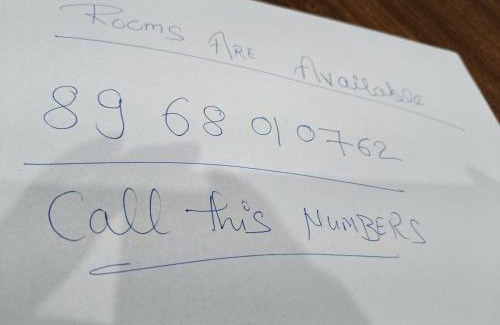 Rooms Are Available
89 68 010762
Call this NUMBERS